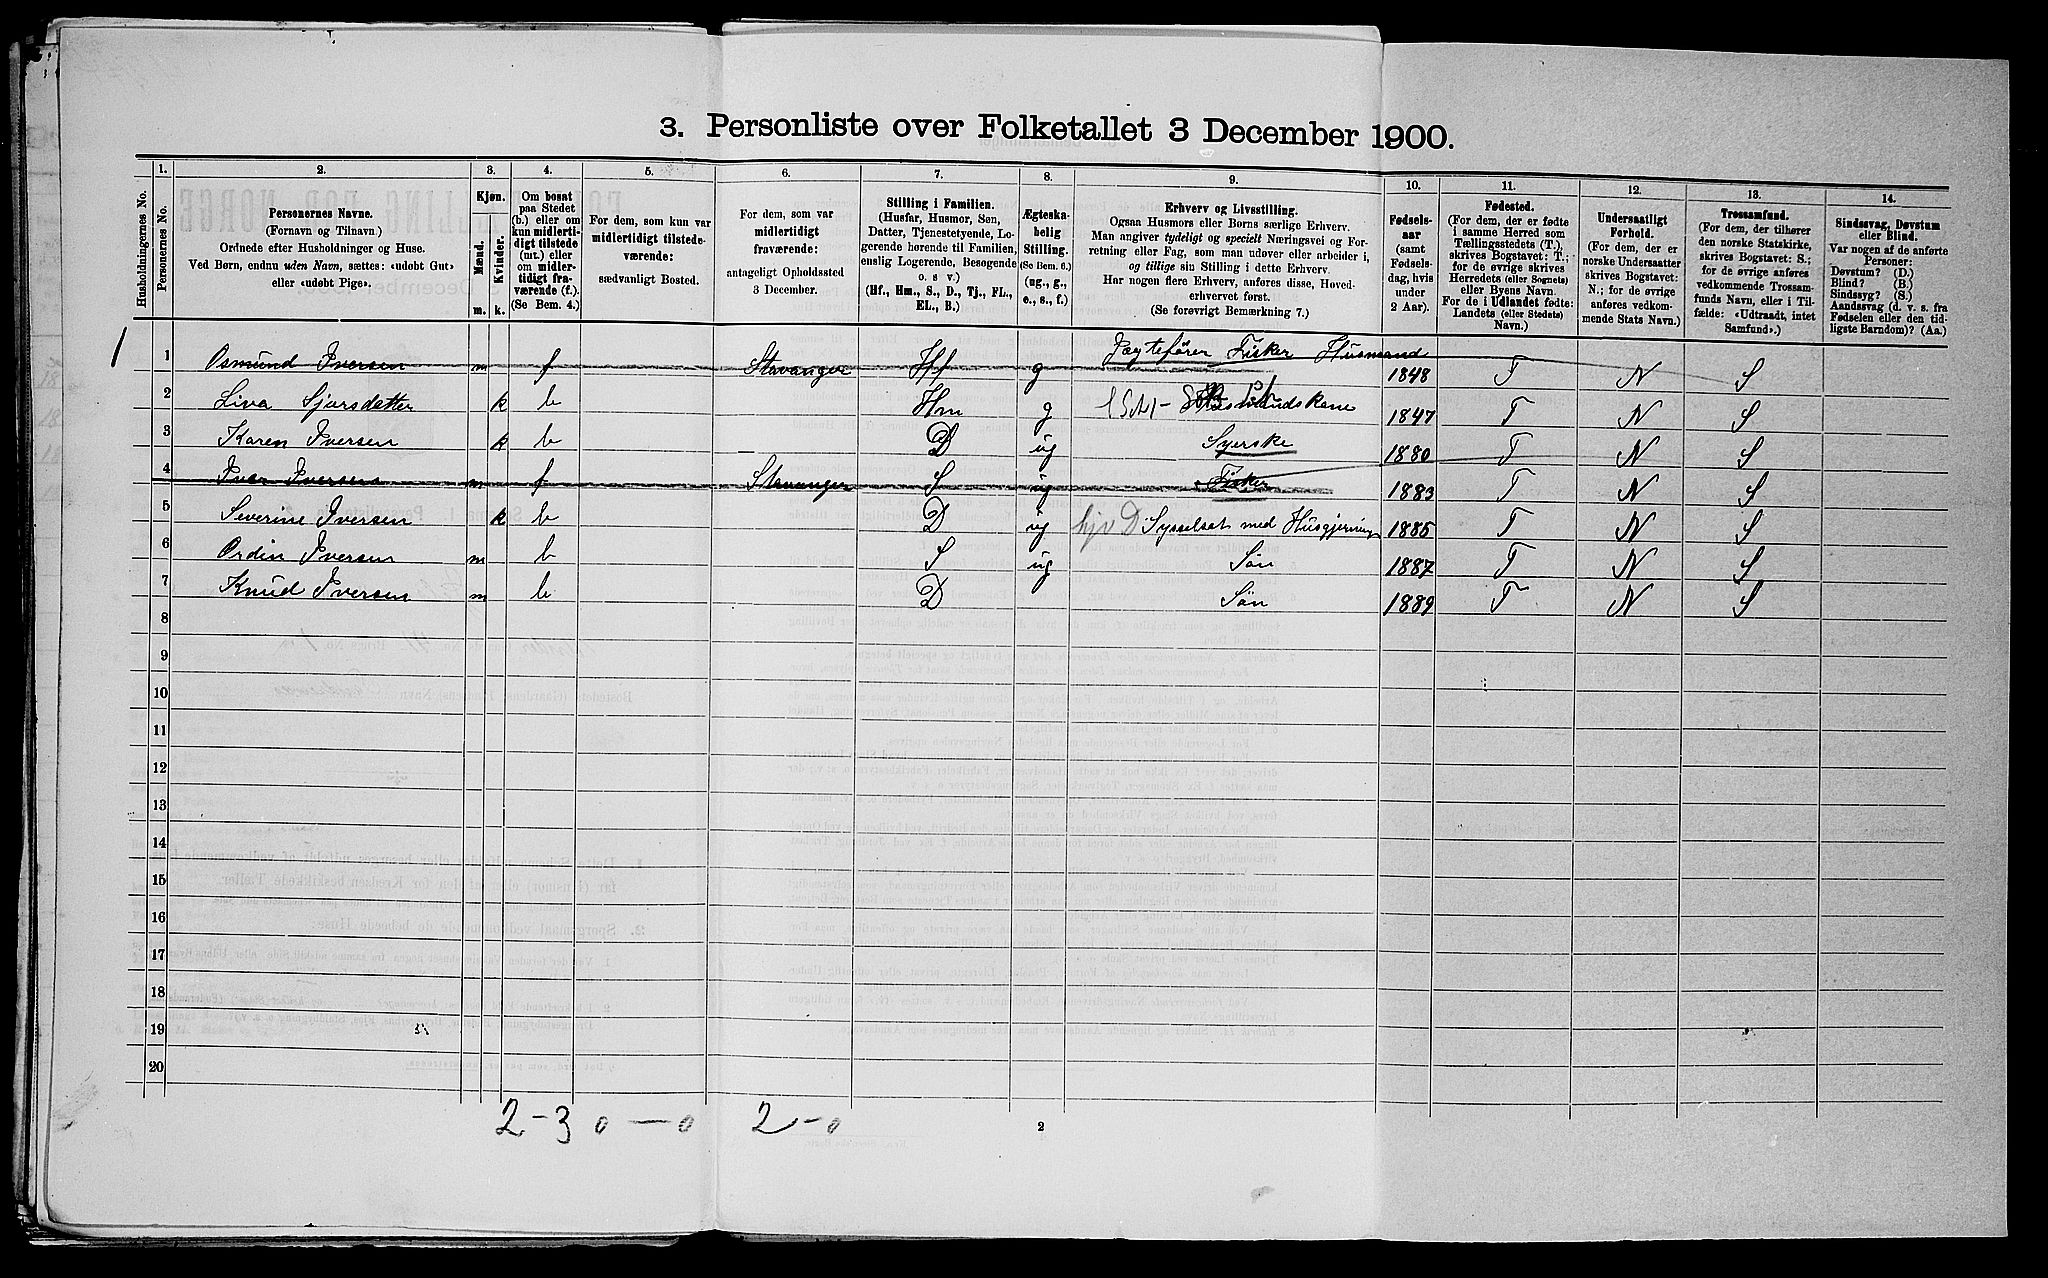 3. Personliste over Folketallet 3 December 1900.
1. 2. 3. 4. 5. 6. 7. 8. 9. 10. 11. 12. 13. 14.
Husholdningernes No.
Personernes No.
Personernes Navne.
(Fornavn og Tilnavn.)
Ordnede efter Husholdninger og Huse.
Ved Børn, endnu uden Navn, sættes: «udøbt Gut»
eller «udøbt Pige».
Kjøn.
Mænd.
Kvinder.
m. k.
Om bosat
paa Stedet
(b.) eller om
kun midlerti-
digt tilstede
(mt.) eller
om midler-
tidigt fra-
værende (f.).
(Se Bem. 4.)
For dem, som kun var
midlertidigt tilstede-
værende:
sædvanligt Bosted.
For dem, som var
midlertidigt
fraværende:
antageligt Opholdssted
3 December.
Stilling i Familien.
(Husfar, Husmor, Søn,
Datter, Tjenestetyende, Lo-
gerende hørende til Familien,
enslig Logerende, Besøgende
o. s v.)
(Hf., Hm., S., D., Tj., FL.,
EL., B.)
Ægteska-
belig
Stilling.
(Se Bem. 6.)
(ug., g.,
e., s., f.)
Erhverv og Livsstilling.
Ogsaa Husmors eller Børns særlige Erhverv.
Man angiver tydeligt og specielt Næringsvei og For-
retning eller Fag, som man udøver eller arbeider i,
og tillige sin Stilling i dette Erhverv.
Har nogen flere Erhverv, anføres disse, Hoved-
erhvervet først.
(Se forøvrigt Bemærkning 7.)
Fødsels-
aar
(samt
Fødsels-
dag, hvis
under
2 Aar).
Fødested.
(For dem, der er fødte
i samme Herred som
Tællingsstedets (T.),
skrives Bogstavet: T.;
for de øvrige skrives
Herredets (eller Sognets)
eller Byens Navn.
For de i Udlandet fødte:
Landets (eller Stedets)
Navn.)
Undersaatligt
Forhold.
(For dem, der er
norske Undersaatter
skrives Bogstavet:
N.; for de øvrige
anføres vedkom-
mende Stats Navn.)
Trossamfund.
(For dem, der tilhører
den norske Statskirke,
skrives Bogstavet: S.;
for de øvrige anføres
vedkommende Trossam-
funds Navn, eller i Til-
fælde: «Udtraadt, intet
Samfund».)
Sindssvag, Døvstum
eller Blind.
Var nogen af de anførte
Personer:
Døvstum? (D.)
Blind? (B.)
Sindssyg? (S.)
Aandssvag (d. v. s. fra
Fødselen eller den tid-
ligste Barndom)? (Aa.)
1 1 Osmund Iversen m f Stavanger Hf g Jægtefører Fisker Husmand 1848 T N S
2 Liva Sjursdatter k b Hm g Husmandskone 1847 T N S
3 Karen Iversen k b D ug Syerske 1880 T N S
4 Iver Iversen m f Stavanger S ug Fisker 1883 T N S
5 Severine Iversen k b D ug hjv D Sysselsat med Husgjerning 1885 T N S
6 Ordin Iversen m b S ug Søn 1887 T N S
7 Knud Iversen m b D Søn 1889 T N S
8
9
10
11
12
13
14
15
16
17
18
19
20
2-3 0-0 2-0
2